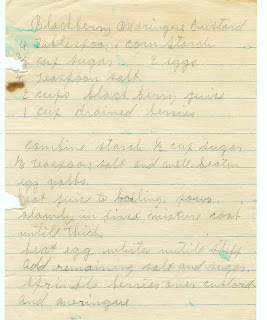 Blackberry Meringue Custard
4 Tablespoons corn starch
cup sugar 2 eggs
Teaspoon salt
2 cups blackberry juice
1 cup drained berries
Comfine starch ½ cup sugar
⅛ Teaspoon salt and well beaten
egg yolks.
Heat juice to boiling. pour
slowly in first mixture cook
untill thick
beat egg whites untill stiff
add remaining salt and sugar.
Sprinkle berries over custard
and meringue